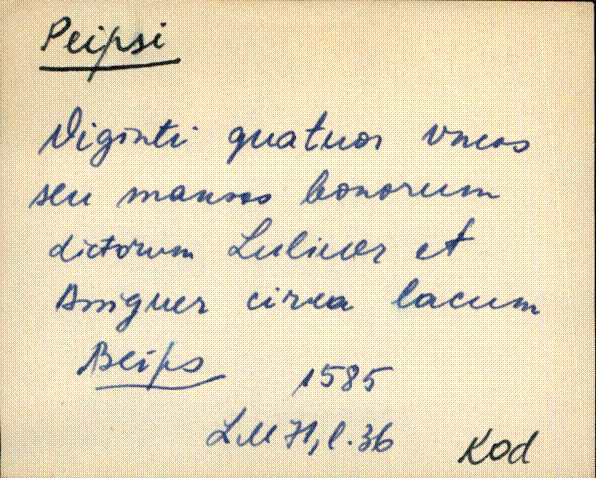 Peipsi
Viginti quatuor uncos
seu mansos bonorum
dictorum Luliwer et
Assiguer circa lacum
Beips 1585
LM 71, l. 36 Kod